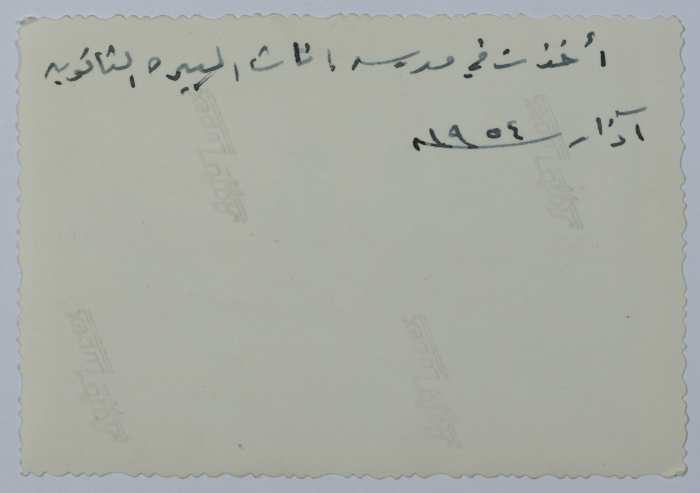 أخذت في مدرسه اناث البيره الثانويه
آذار ١٩٥٤م
Agfa Lupex
Agfa Lupex
Agfa Lupex
Agfa Lupex